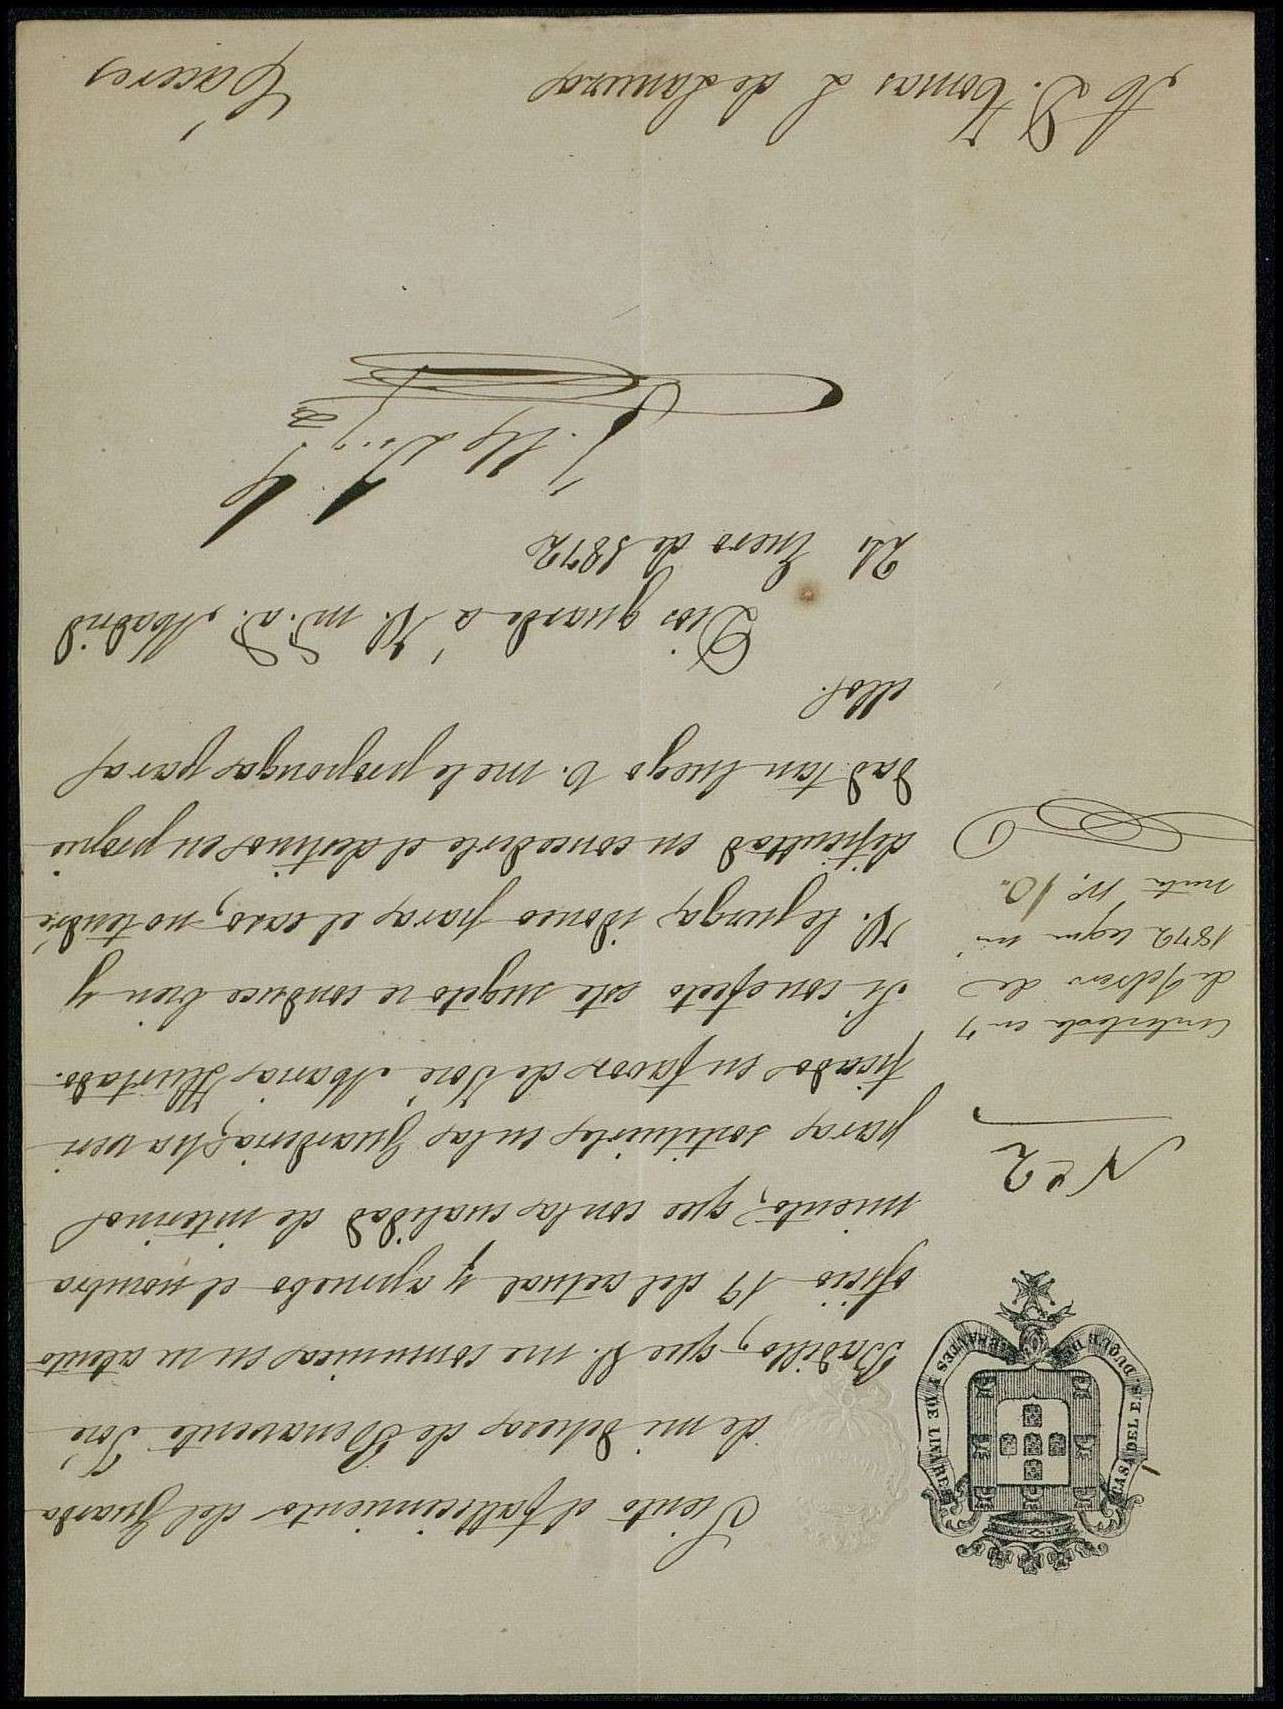 CASA DEL E. S. DUQUE DE ABRANTES Y DE LINARES
Nº 2
Contestada en 7
de Febrero de
1872 segun mi
nuta Nº. 10.
Siento el fallecimiento del Guarda
de mi dehesa de Benavente José
Badillo, que V. me comunica en su atento
oficio 17 del actual y apruebo el nombra
miento, que con la cualidad de interino
para sostituirle en la Guarderia, ha veri
ficado en favor de José Maria Hurtado.
Si con efecto este sugeto se conduce bien y
V. le juzga idoneo para el caso, no tendré
dificultad en concederle el destino en propie
dad tan luego V. me le proponga para
ello.
Dios guarde á V. m. a. Madrid
24 Enero de 1872
A D. Tomas L de Sanurza
Cáceres